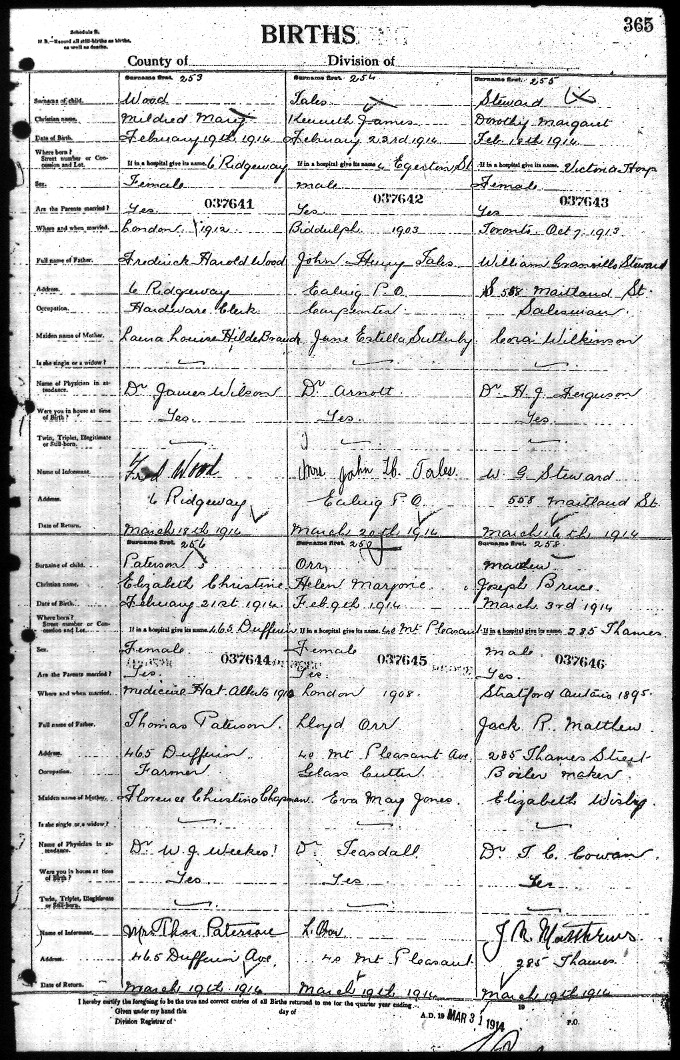 365
Schedule B.
N B.—Record all still-births as births, as well as deaths.
BIRTHS
County of
Division of
Surname first. 253 Surname first. 254 Surname first. 255
Surname of child. Wood Tales Steward
Christian name. Mildred Mary Kenneth James Dorothy Margaret
Date of Birth. February 19th 1914 February 23rd 1914 Feb 12th 1914
Where born? Street number or Concession and Lot. If in a hospital give its name. 6 Ridgeway If in a hospital give its name. Egerton St. If in a hospital give its name. Victoria Hosp
Sex. Female male Female
037641 037642 037643
Are the Parents married? Yes. Yes. Yes
Where and when married. London 1912 Biddulph 1903 Toronto Oct 7, 1913
Full name of Father. Fredrick Harold Wood John Henry Tales William Granville Steward
Address. 6 Ridgeway Ealing P.O. 558 Maitland St.
Occupation. Hardware Clerk Carpenter Salesman
Maiden name of Mother. Laura Louise HildeBrand Jane Estella Sutherby Cora Wilkinson
Is she single or a widow?
Name of Physician in attendance. Dr James Wilson Dr Arnott. Dr. H. J. Ferguson
Were you in house at time of Birth? Yes. Yes. Yes
Twin, Triplet, Illegitimate or Still-born.
Name of Informant. Fred Wood Mrs John H. Tales. W. G Steward
Address. 6 Ridgeway Ealing P.O. 558 Maitland St.
Date of Return. March 18th 1914 March 20th 1914 March 16th 1914
Surname first. 256 Surname first. Surname first. 258
Surname of child. Paterson Orr Matthew
Christian name. Elizabeth Christine Helen Marjorie Joseph Bruce
Date of Birth. February 21st 1914 Feb 9th 1914 March 3rd 1914
Where born? Street number or Concession and Lot. If in a hospital give its name. 465 Dufferin If in a hospital give its name. 40 Mt Pleasant If in a hospital give its name. 285 Thames
Sex. Female Female male.
037644 037645 037646
Are the Parents married? Yes. Yes. Yes.
Where and when married. Medicine Hat. Alberta London 1908. Stratford Ontario 1895.
Full name of Father. Thomas Paterson. Lloyd Orr Jack R. Matthew
Address. 465 Dufferin. 40 Mt Pleasant Ave. 285 Thames Street
Occupation. Farmer Glass Cutter Boiler maker
Maiden name of Mother. Florence Christine Chapman. Eva May Jones. Elizabeth Wisby
Is she single or a widow?
Name of Physician in attendance. Dr W. J. Weekes Dr Teasdall Dr. T. C. Cowan.
Were you in house at time of Birth? Yes. Yes Yes
Twin, Triplet, Illegitimate or Still-born.
Name of Informant. Mrs Thos Paterson L. Orr J. R. Matthews
Address. 465 Dufferin Ave. 40 Mt Pleasant 285 Thames.
Date of Return. March 19th 1914 March 19th 1914 March 19th 1914
I hereby certify the foregoing to be the true and correct entries of all Births returned to me for the quarter year ending 19
Given under my hand this day of A.D. 19 MAR 31 1914
Division Registrar of P.O.